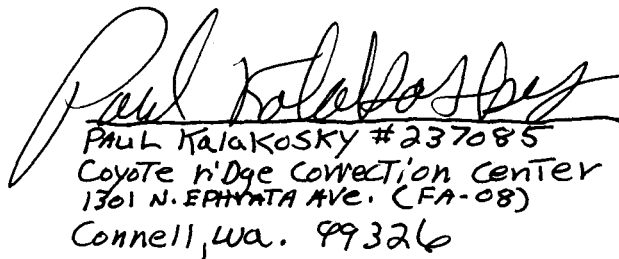 Paul Kalakosky
PAUL KalaKOSKY #237085
Coyote riDge correcTion cenTer
1301 N. EPHRATA AVE. (FA-08)
Connell, wa. 99326